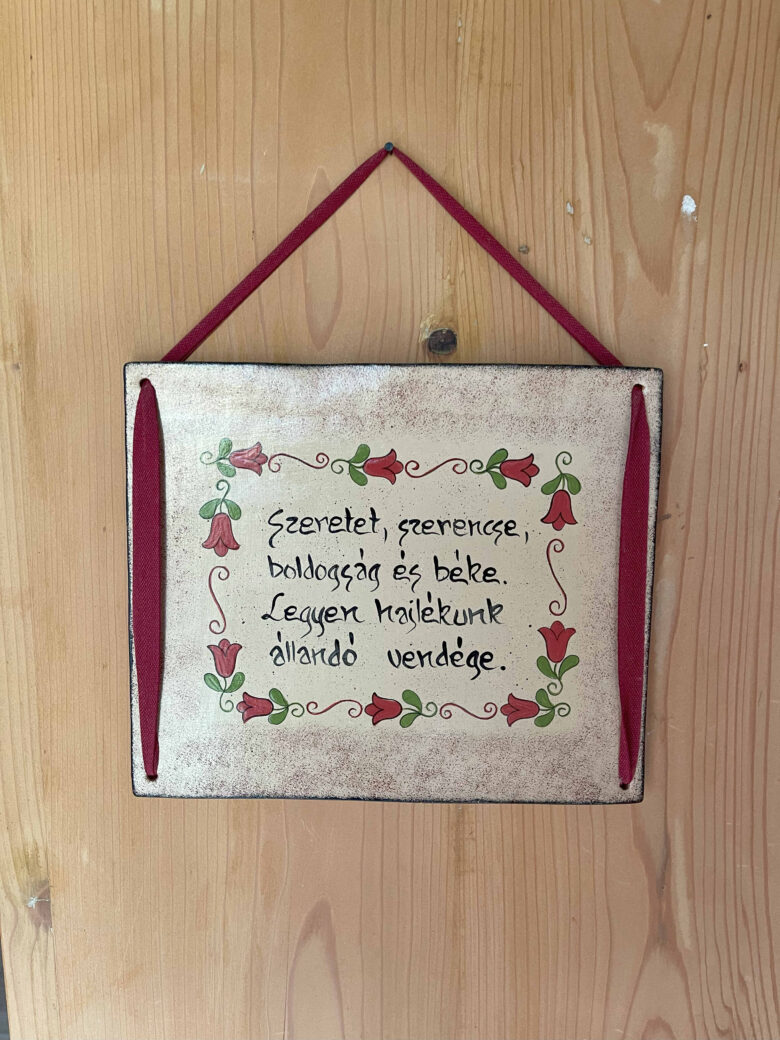 Szeretet, szerencse,
boldogság és béke.
Legyen hajlékunk
állandó vendége.